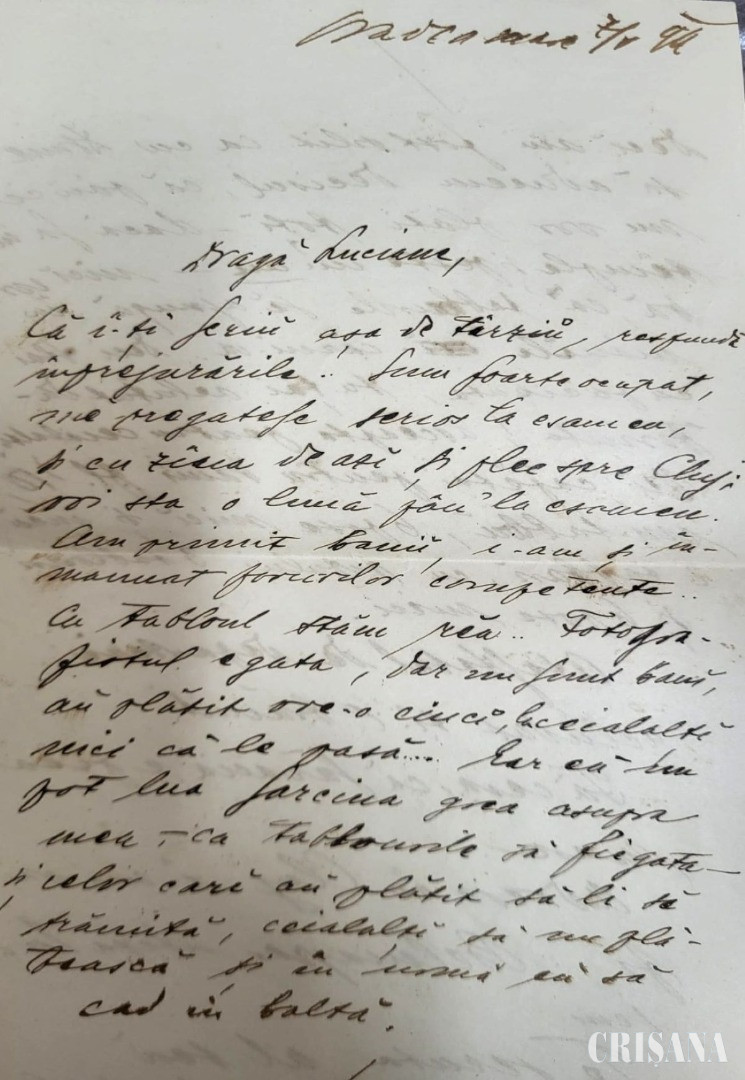 Oradea mare 7/V
Dragă Luciane,
Că î-ți scriŭ așa de târziŭ, respundă
împrejurările.. Sunt foarte ocupat,
mĕ pregatesc serios la esamen,
și cu ziua de azi și plec spre Cluj,
voi sta o lună pân' la esamen.
Am primit banii, i-am și în-
manuat forurilor competente..
Cu tabloul stăm rĕu.. Fotogra-
fiatul e gata, dar nu sunt bani,
aŭ plătit vre-o cinci, la ceialalți
nici că le pasă.... Iar eŭ nu
pot lua sarcina grea asupra
mea, - ca tablourile să fie gata -
și celor cari aŭ plătit să li se
trămită, ceialalți să nu plă-
tească și în urmă eŭ să
cad în baltă.
CRIȘANA